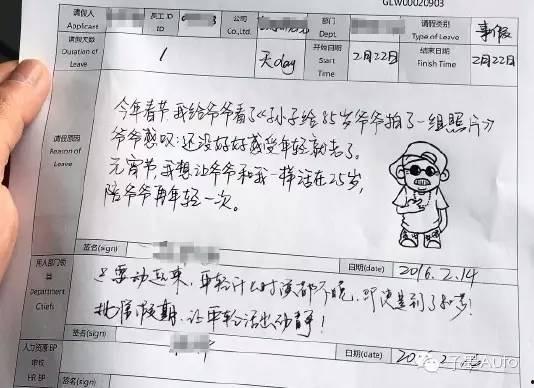 GLW00020903
请假人 员工ID 公司 部门 请假类别 事假
Applicant ID Co.,Ltd. Dept. Type of Leave
请假天数 1 天day 开始日期 2月22日 结束日期 2月22日
Duration of Leave Start Time Finish Time
请假原因
Reason of Leave
今年春节我给爷爷看了《孙子给85岁爷爷拍了一组照片》
爷爷感叹:还没好好感受年轻就老了。
元宵节我想让爷爷和我一样活在25岁,
陪爷爷再年轻一次。
签名(sign) 日期(date) 2016.2.14
用人部门
Department Chiefs
年轻什么时候都不晚,即使是到了80岁!
批准 假期,让年轻活出动静!
签名(sign)
人力资源BP
审核
HR BP
日期(date)
AUTO